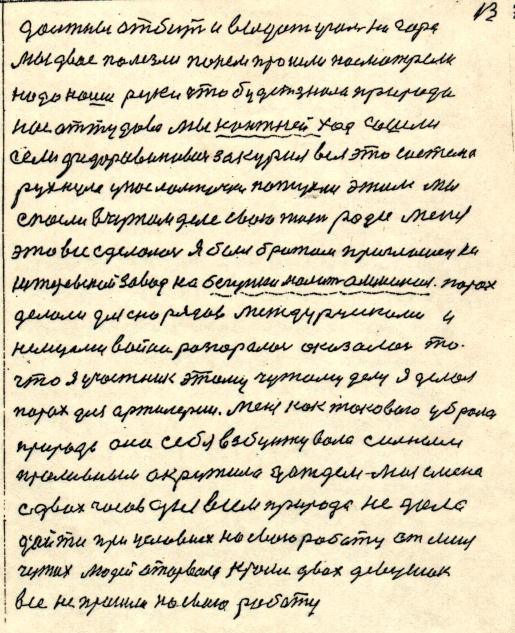 13
должны отбить и
мы двое полезли потом пришли посмотрели
надо наши руки что будет знала природа
нас оттудова мы кончней ход сошли
сели закурил вся это система
рухнула у нас лампочки потухли этим мы
спасли в чужом деле свою жизнь роды меня
это все сделалось Я был братом приглашен на
завод на бегунки порох
делали для снарядов между турчинами и
немцами война разгоралась оказалось то
что я участник этому чужому делу Я делал
порох для артилерии. меня как такового убрала
природа она себя взбунтовала сильным
проливным окружила дождем моя смена
с двух часов дня всем природа не дала
дойти при условиях на свою работу от меня
чужих людей оторвала кроме двох девушок
все не пришли на свою работу